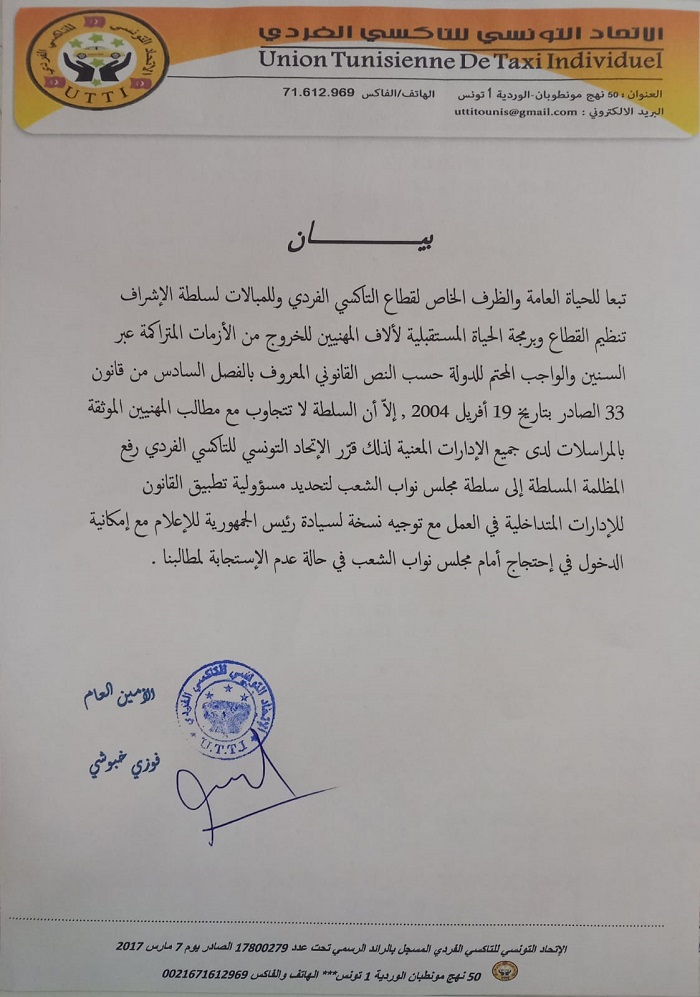 الاتحاد التونسي للتاكسي الفردي
Union Tunisienne De Taxi Individuel
العنوان : 50 نهج مونطوبان-الوردية 1 تونس الهاتف/الفاكس 71.612.969
البريد الالكتروني : uttitounis@gmail.com
الاتحاد التونسي للتاكسي الفردي
UTTI
بيـــــــان
تبعا للحياة العامة والظرف الخاص لقطاع التاكسي الفردي وللمبالات لسلطة الإشراف
تنظيم القطاع وبرمجة الحياة المستقبلية لألاف المهنيين للخروج من الأزمات المتراكمة عبر
السنين والواجب المحتم للدولة حسب النص القانوني المعروف بالفصل السادس من قانون
33 الصادر بتاريخ 19 أفريل 2004 , إلاّ أن السلطة لا تتجاوب مع مطالب المهنيين الموثقة
بالمراسلات لدى جميع الإدارات المعنية لذلك قرّر الإتحاد التونسي للتاكسي الفردي رفع
المظلمة المسلطة إلى سلطة مجلس نواب الشعب لتحديد مسؤولية تطبيق القانون
للإدارات المتداخلية في العمل مع توجيه نسخة لسيادة رئيس الجمهورية للإعلام مع إمكانية
الدخول في إحتجاج أمام مجلس نواب الشعب في حالة عدم الإستجابة لمطالبنا .
الأمين العام
فوزي خبوشي
الإتحاد التونسي للتاكسي الفردي
U.T.T.I
الإتحاد التونسي للتاكسي الفردي المسجل بالرائد الرسمي تحت عدد 17800279 الصادر يوم 7 مارس 2017
50 نهج مونطبان الوردية 1 تونس*** الهاتف والفاكس 0021671612969